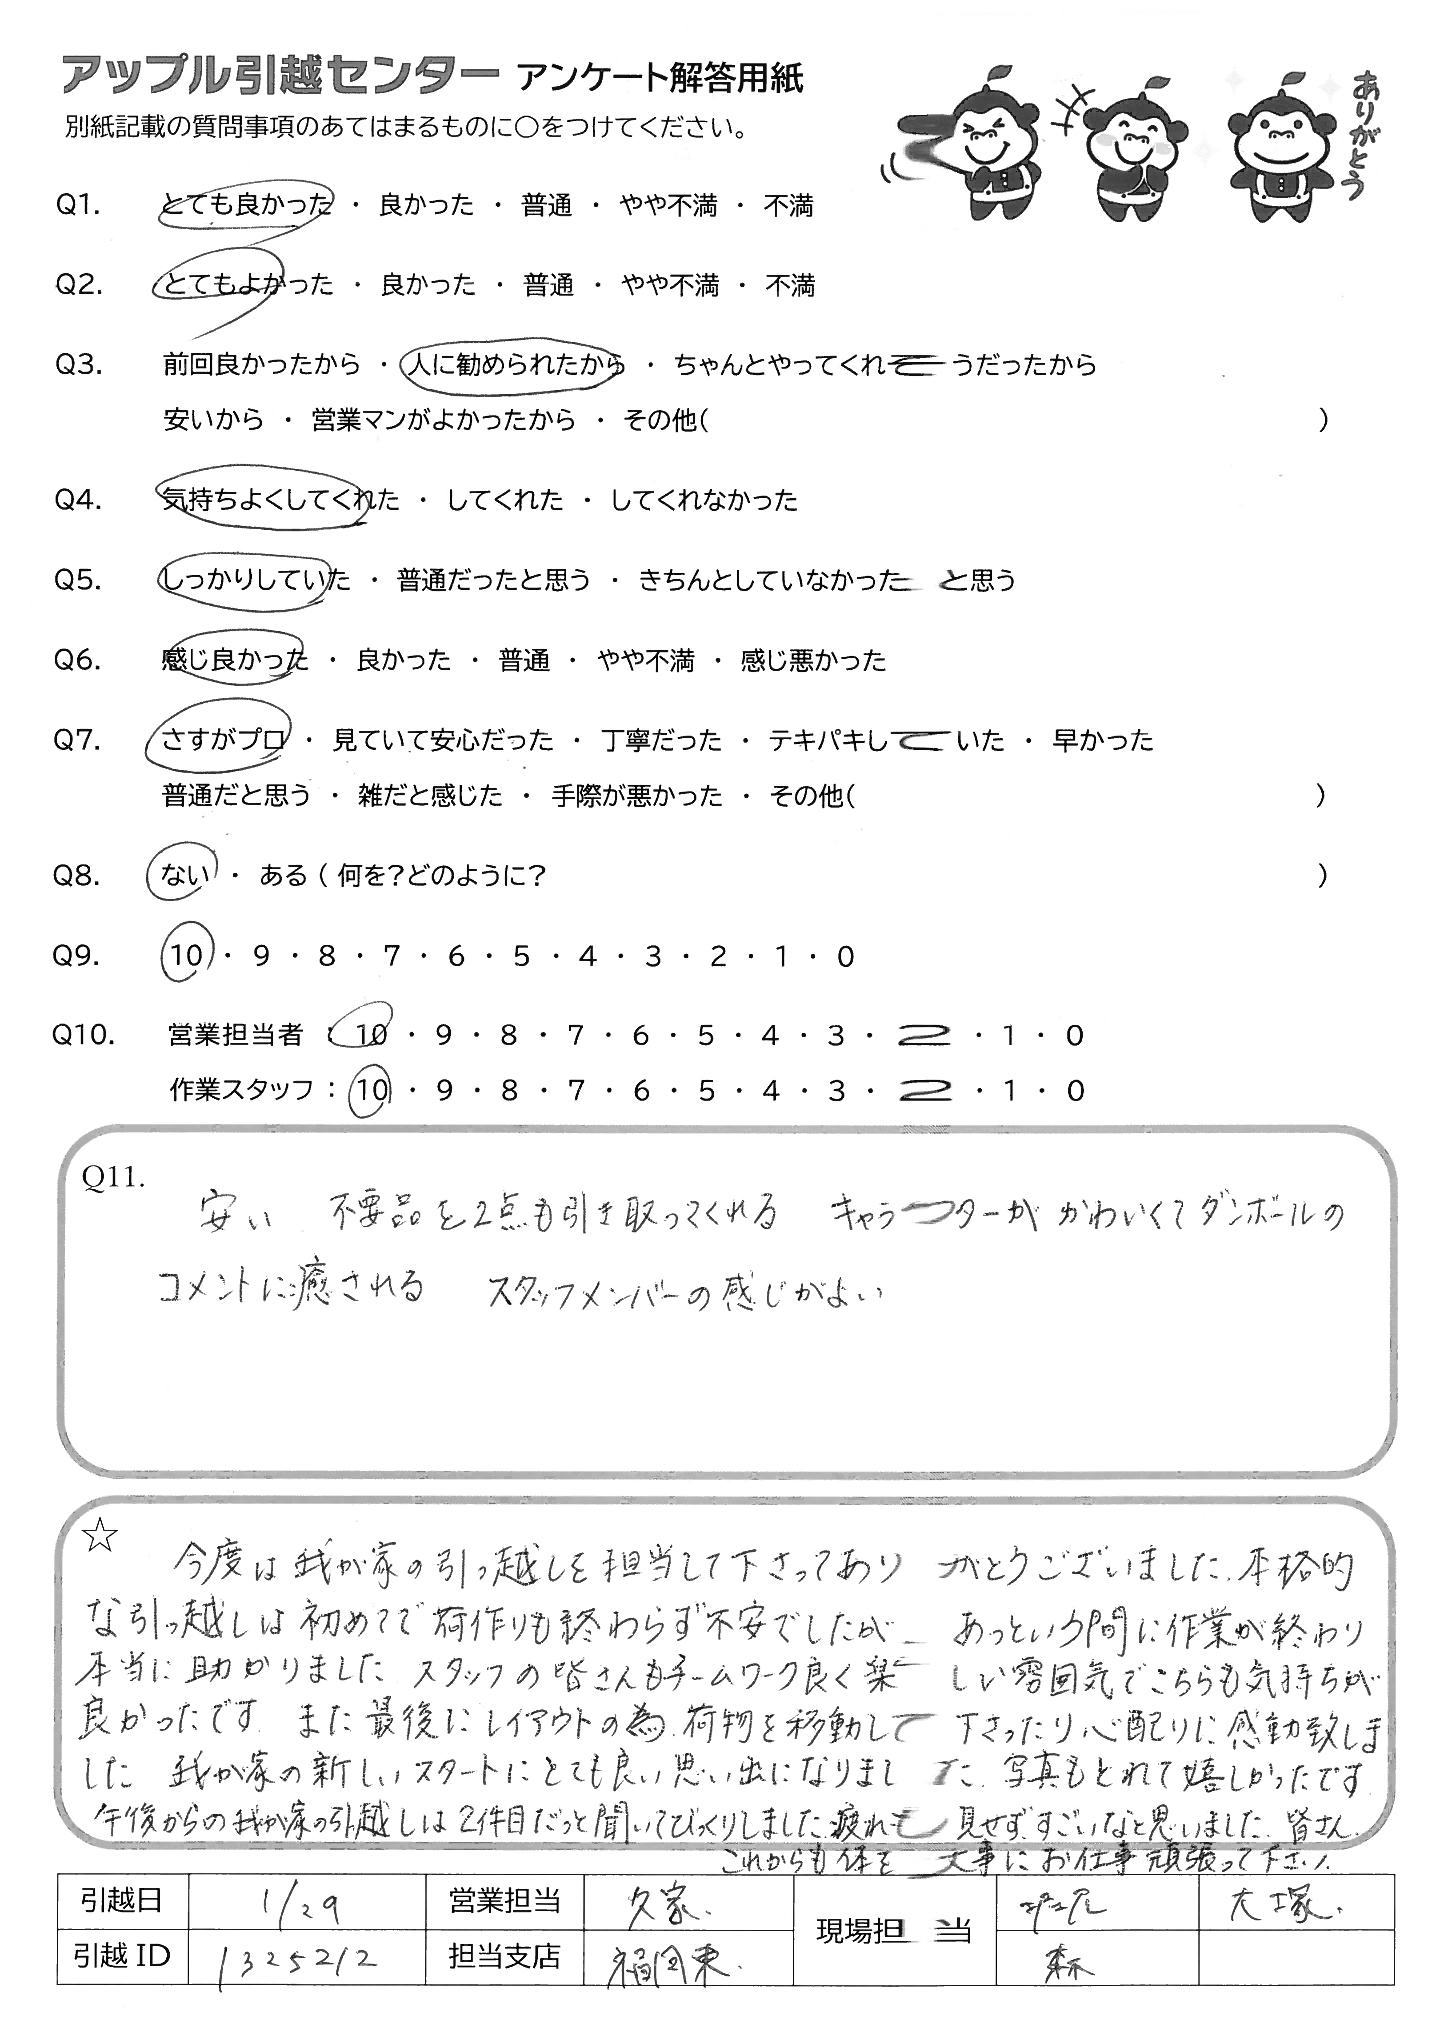 アップル引越センター アンケート解答用紙
別紙記載の質問事項のあてはまるものに○をつけてください。
ありがとう
Q1. とても良かった ・ 良かった ・ 普通 ・ やや不満 ・ 不満
Q2. とてもよかった ・ 良かった ・ 普通 ・ やや不満 ・ 不満
Q3. 前回良かったから ・ 人に勧められたから ・ ちゃんとやってくれそうだったから
安いから ・ 営業マンがよかったから ・ その他( )
Q4. 気持ちよくしてくれた ・ してくれた ・ してくれなかった
Q5. しっかりしていた ・ 普通だったと思う ・ きちんとしていなかったと思う
Q6. 感じ良かった ・ 良かった ・ 普通 ・ やや不満 ・ 感じ悪かった
Q7. さすがプロ ・ 見ていて安心だった ・ 丁寧だった ・ テキパキしていた ・ 早かった
普通だと思う ・ 雑だと感じた ・ 手際が悪かった ・ その他( )
Q8. ない ・ ある ( 何を?どのように? )
Q9. 10 ・ 9 ・ 8 ・ 7 ・ 6 ・ 5 ・ 4 ・ 3 ・ 2 ・ 1 ・ 0
Q10. 営業担当者 : 10 ・ 9 ・ 8 ・ 7 ・ 6 ・ 5 ・ 4 ・ 3 ・ 2 ・ 1 ・ 0
作業スタッフ : 10 ・ 9 ・ 8 ・ 7 ・ 6 ・ 5 ・ 4 ・ 3 ・ 2 ・ 1 ・ 0
Q11.
安い 不要品を2点も引き取ってくれる キャラクターがかわいくてダンボールの
コメントに癒される スタッフメンバーの感じがよい
☆ 今度は我が家の引っ越しを担当して下さってありがとうございました.本格的
な引っ越しは初めてで荷作りも終わらず不安でしたが あっという間に作業が終わり
本当に助かりました スタッフの皆さんもチームワーク良く楽しい雰囲気でこちらも気持ちが
良かったです. また最後にレイアウトの為、荷物を移動して下さったり心配りに感動致しま
した 我が家の新しいスタートにとても良い思い出になりました.写真もとれて嬉しかったです
午後からの我が家の引越しは2件目だっと聞いてびっくりしました.疲れも見せず、すごいなと思いました.皆さん.
これからも体を大事にお仕事頑張って下さい.
引越日 1/29 営業担当 久家. 現場担当 大塚.
引越 ID 1325212 担当支店 福岡東. 森